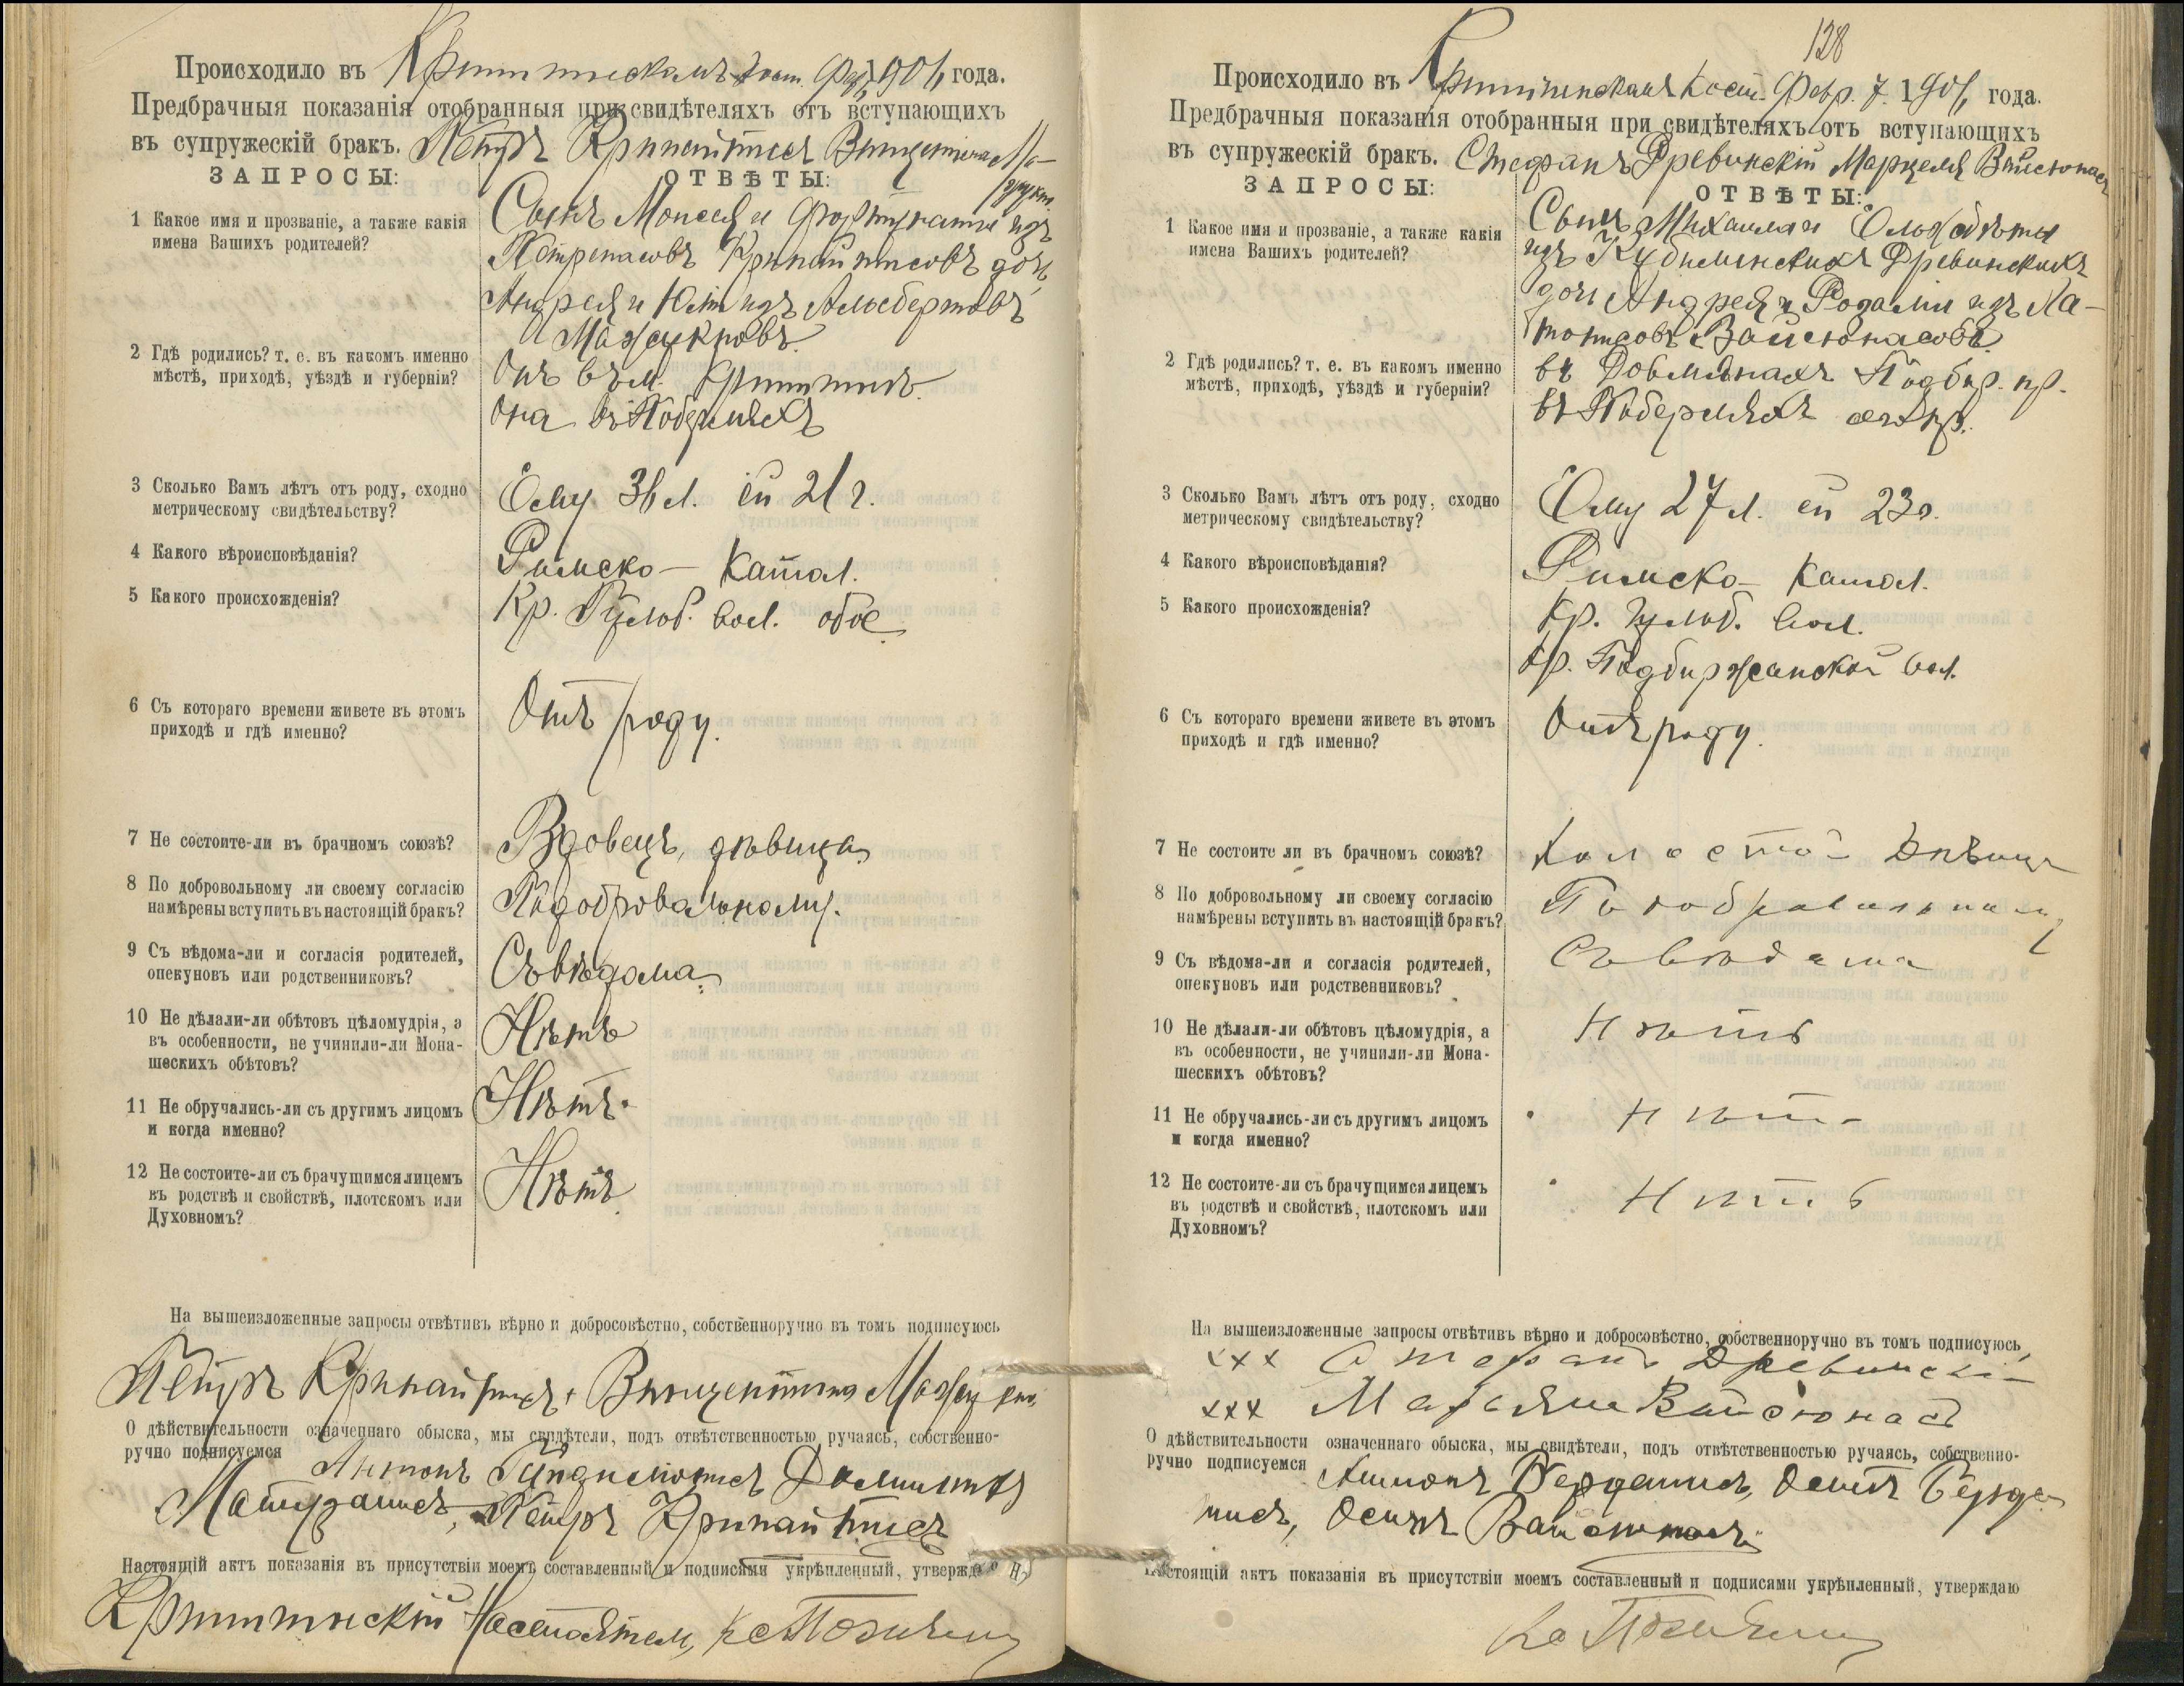 Происходило въ Криттинскомъ Кост. Фев. 7 1901 года.
Предбрачныя показанія отобранныя при свидѣтеляхъ отъ вступающихъ
въ супружескій бракъ. Петръ Крипайтисъ Винцентина Ма-
ЗАПРОСЫ:
ОТВѢТЫ:
1 Какое имя и прозваніе, а также какія
имена Вашихъ родителей?
Сынъ Моисея и Фортунаты изъ
Петрепасовъ Крипайтисовъ дочь
Андрея и Юліи изъ Альбертовъ
2 Гдѣ родились? т. е. въ какомъ именно
мѣстѣ, приходѣ, уѣздѣ и губерніи?
Онъ въ м.
Она въ
3 Сколько Вамъ лѣтъ отъ роду, сходно
метрическому свидѣтельству?
Ему л. ей 21 г.
4 Какого вѣроисповѣданія?
Римско-Катол.
5 Какого происхожденія?
Кр. вол. обое
6 Съ котораго времени живете въ этомъ
приходѣ и гдѣ именно?
Отъ роду.
7 Не состоите-ли въ брачномъ союзѣ?
Вдовецъ, дѣвица
8 По добровольному ли своему согласію
намѣрены вступить въ настоящій бракъ?
По добровольному.
9 Съ вѣдома-ли и согласія родителей,
опекуновъ или родственниковъ?
Съ вѣдома
10 Не дѣлали-ли обѣтовъ цѣломудрія, а
въ особенности, не учинили-ли Мона-
шескихъ обѣтовъ?
Нѣтъ
11 Не обручались-ли съ другимъ лицомъ
и когда именно?
Нѣтъ.
12 Не состоите-ли съ брачущимся лицемъ
въ родствѣ и свойствѣ, плотскомъ или
Духовномъ?
Нѣтъ
На вышеизложенные запросы отвѣтивъ вѣрно и добросовѣстно, собственноручно въ томъ подписуюсь
Петръ Крипайтисъ, Винцентина
О дѣйствительности означеннаго обыска, мы свидѣтели, подъ отвѣтственностью ручаясь, собственно-
ручно подписуемся
Антонъ
Петръ Крипайтисъ
Настоящій актъ показанія въ присутствіи моемъ составленный и подписями укрѣпленный, утверждаю
Криттинскій Настоятель,
138
Происходило въ Криттинскомъ Кост. Февр. 7. 1901 года.
Предбрачныя показанія отобранныя при свидѣтеляхъ отъ вступающихъ
въ супружескій бракъ. Стефанъ Древинскій
ЗАПРОСЫ:
ОТВѢТЫ:
1 Какое имя и прозваніе, а также какія
имена Вашихъ родителей?
Сынъ Михаила и Ельжбѣты
изъ Древинскихъ
дочь Андрея и Розаліи изъ Ла-
2 Гдѣ родились? т. е. въ какомъ именно
мѣстѣ, приходѣ, уѣздѣ и губерніи?
въ Подбир. пр.
въ
3 Сколько Вамъ лѣтъ отъ роду, сходно
метрическому свидѣтельству?
Ему 27 л. ей 23 г.
4 Какого вѣроисповѣданія?
Римско-Катол.
5 Какого происхожденія?
Кр. вол.
Кр. Подбиржанской вол.
6 Съ котораго времени живете въ этомъ
приходѣ и гдѣ именно?
Отъ роду.
7 Не состоите ли въ брачномъ союзѣ?
Холостой Дѣвица
8 По добровольному ли своему согласію
намѣрены вступить въ настоящій бракъ?
По добровольному
9 Съ вѣдома-ли и согласія родителей,
опекуновъ или родственниковъ?
Съ вѣдома
10 Не дѣлали-ли обѣтовъ цѣломудрія, а
въ особенности, не учинили-ли Мона-
шескихъ обѣтовъ?
Нѣтъ
11 Не обручались-ли съ другимъ лицомъ
и когда именно?
Нѣтъ
12 Не состоите-ли съ брачущимся лицемъ
въ родствѣ и свойствѣ, плотскомъ или
Духовномъ?
Нѣтъ
На вышеизложенные запросы отвѣтивъ вѣрно и добросовѣстно, собственноручно въ томъ подписуюсь
xxx Стефанъ Древинскій
xxx
О дѣйствительности означеннаго обыска, мы свидѣтели, подъ отвѣтственностью ручаясь, собственно-
ручно подписуемся
Осипъ
Осипъ
Настоящій актъ показанія въ присутствіи моемъ составленный и подписями укрѣпленный, утверждаю